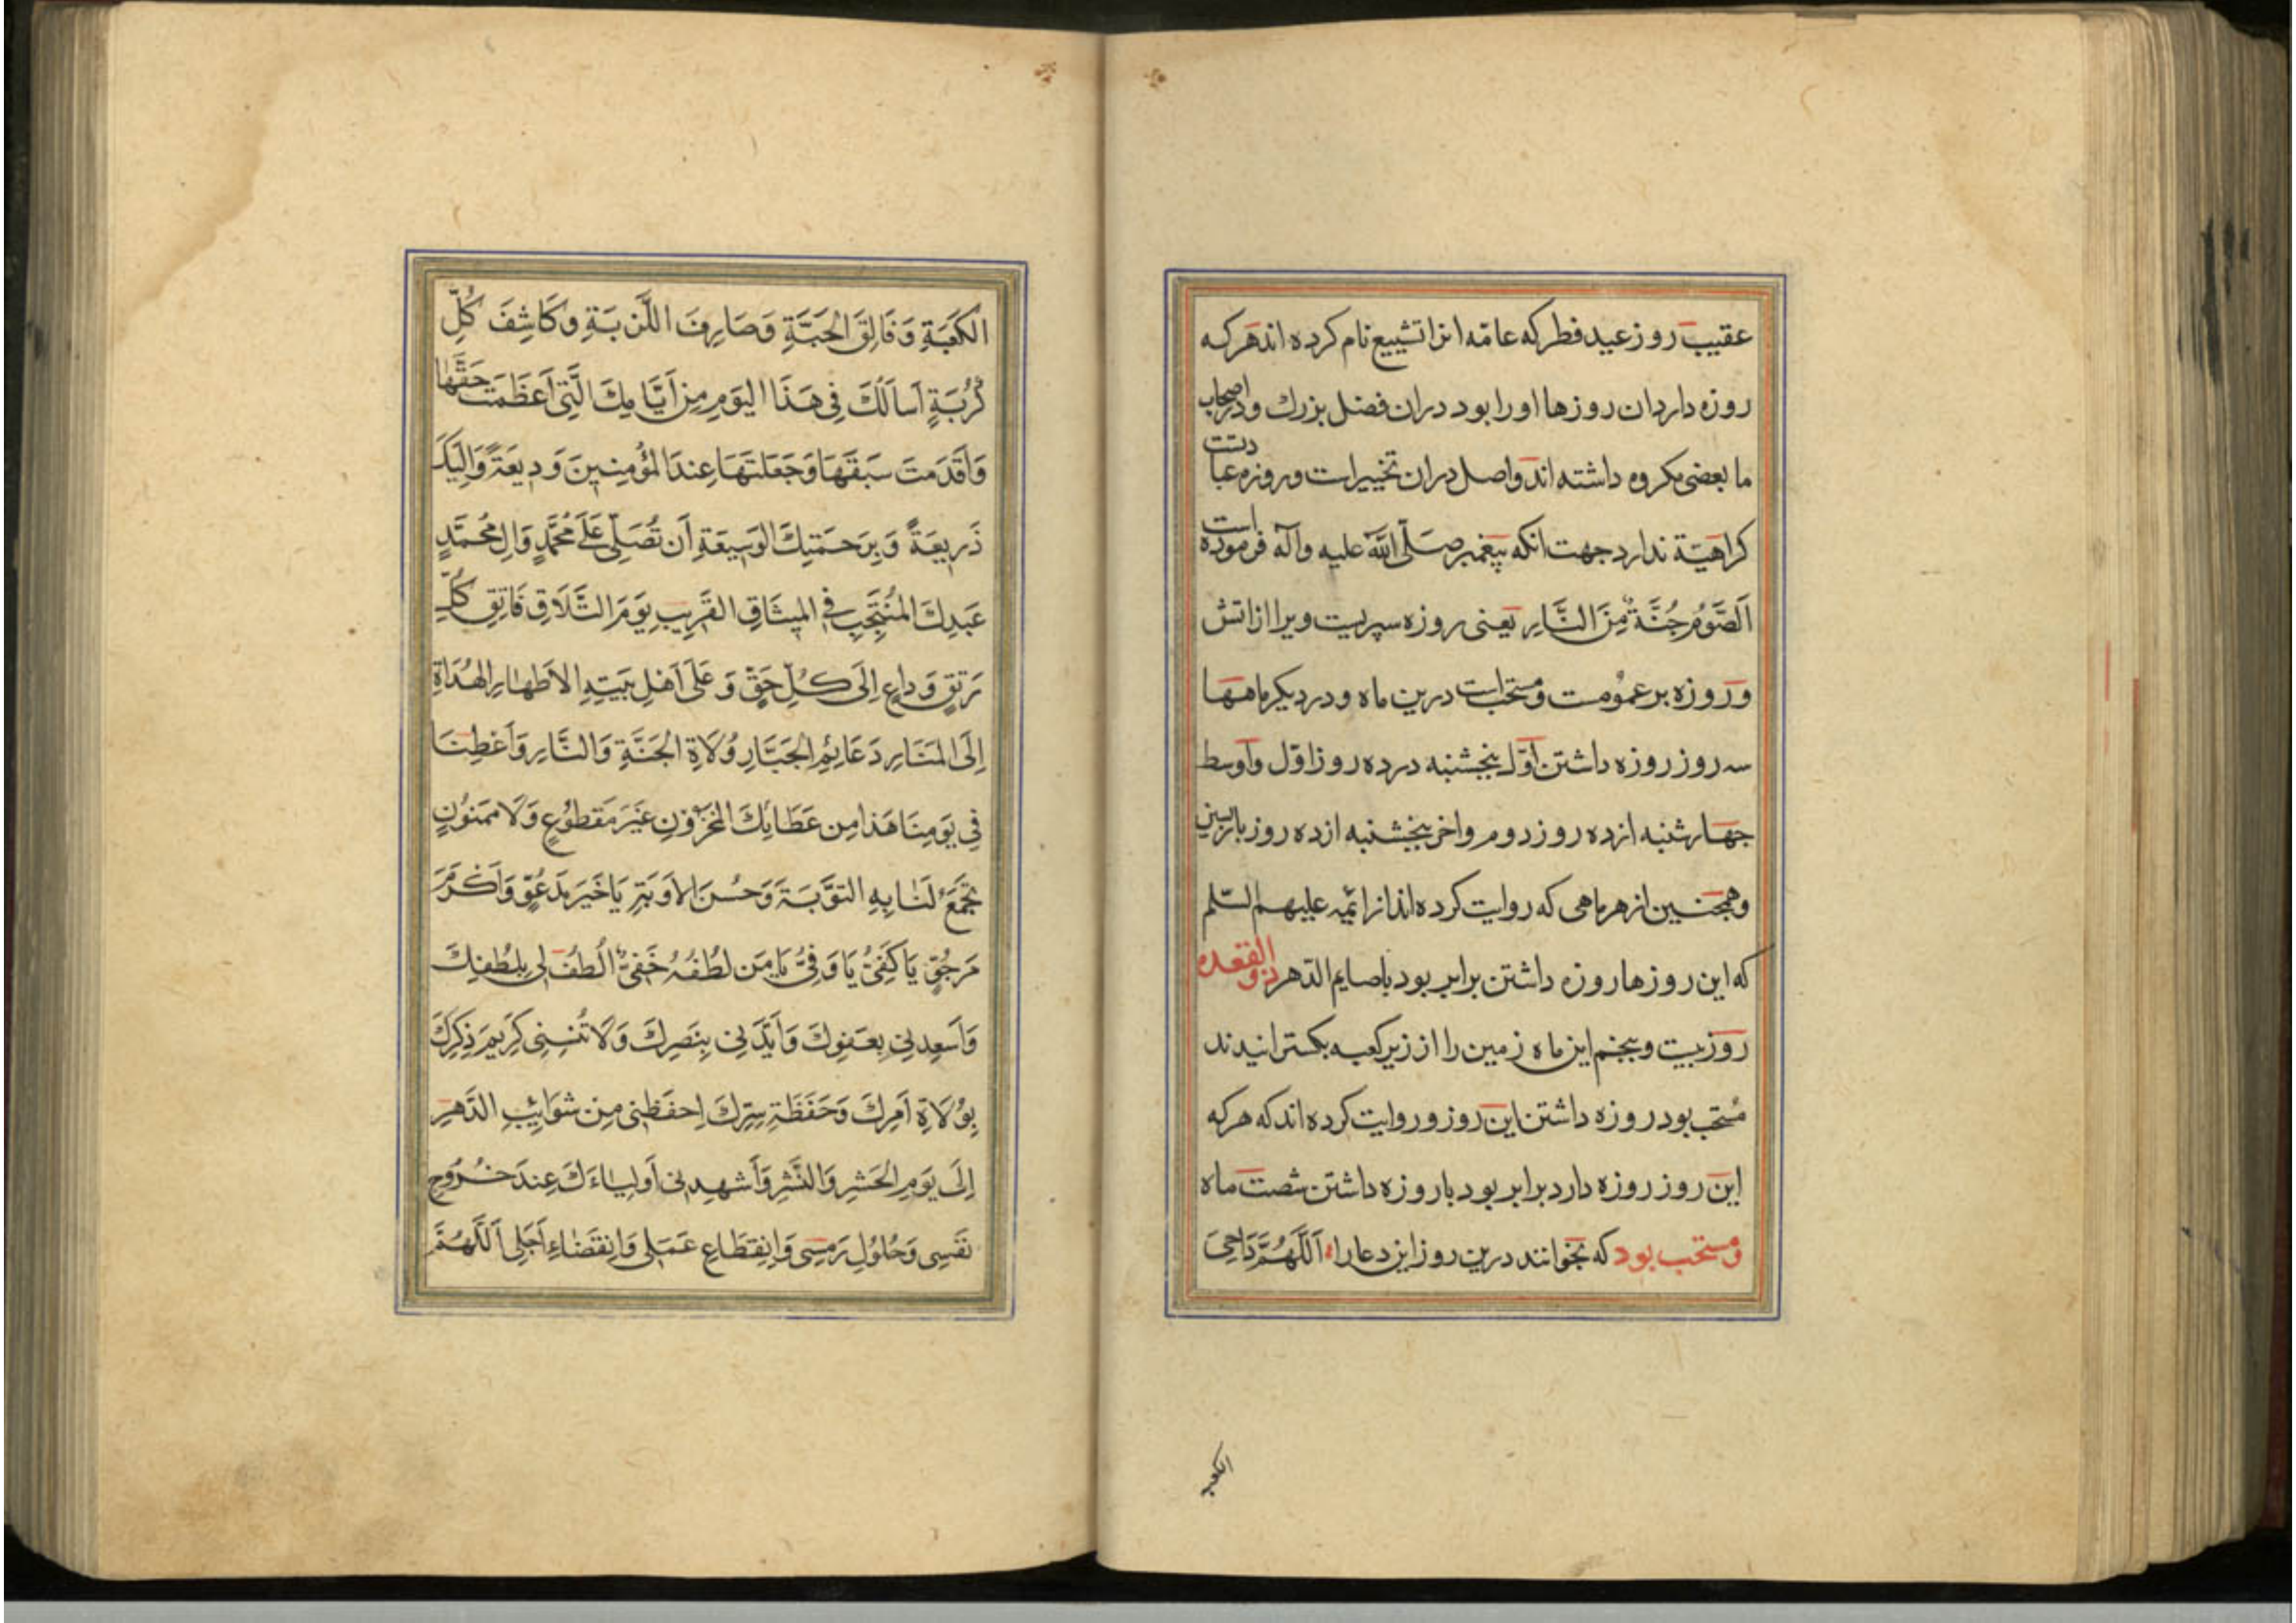 عقیب روز عید فطر که عامّه انرا تشییع نام کرده اند هر که
روزه دارد ان روزها اورا بود دران فضل بزرك ودر اصحاب
ما بعضی مکروه داشته اند واصل دران تخییرست وروزه عبادتست
کراهیّة ندارد جهت انکه پیغمبر صَلّی الله علیه وآله فرموده است
اَلصَّوْمُ جُنَّةٌ مِنَ النَّارِ یعنی روزه سپریست ویرا از اتش
وروزه بر عمومست ومستحبّ است درین ماه ودر دیکر ماهها
سه روز روزه داشتن اوّل پنجشنبه در ده روز اوّل واوسط
جهارشنبه از ده روز دوم واخر پنجشنبه از ده روز بازپسین
وهمچنین از هر ماهی که روایت کرده اند از ائمّه علیهم السّلم
که این روزها روزه داشتن برابر بود با صایم الدّهر ذو القعده
روز بیست وپنجم این ماه زمین را از زیر کعبه بکسترانیدند
مستحب بود روزه داشتن این روز وروایت کرده اند که هر که
این روز روزه دارد برابر بود با روزه داشتن شصت ماه
ومستحب بود که بخوانند درین روز این دعا را اَللّهُمَّ دَاحِیَ
الکعبه
الْكَعْبَةِ وَفَالِقَ الْحَبَّةِ وَصَارِفَ اللَّزْبَةِ وَكَاشِفَ كُلِّ
كُرْبَةٍ اَسْاَلُكَ فِی هَذَا الْيَوْمِ مِنْ اَيَّامِكَ الَّتِی اَعْظَمْتَ حَقَّهَا
وَاَقْدَمْتَ سَبْقَهَا وَجَعَلْتَهَا عِنْدَ الْمُؤْمِنِينَ وَدِيعَةً وَاِلَيْكَ
ذَرِيعَةً وَبِرَحْمَتِكَ الْوَسِيعَةِ اَنْ تُصَلِّیَ عَلَى مُحَمَّدٍ وَالِ مُحَمَّدٍ
عَبْدِكَ الْمُنْتَجَبِ فِی الْمِيثَاقِ الْقَرِيبِ يَوْمَ التَّلَاقِ فَاتِقِ كُلِّ
رَتْقٍ وَدَاعٍ اِلَى كُلِّ حَقٍّ وَعَلَى اَهْلِ بَيْتِهِ الْاَطْهَارِ الْهُدَاةِ
اِلَى الْمَنَارِ دَعَائِمِ الْجَبَّارِ وُلَاةِ الْجَنَّةِ وَالنَّارِ وَاَعْطِنَا
فِی يَوْمِنَا هَذَا مِنْ عَطَائِكَ الْمَخْزُونِ غَيْرَ مَقْطُوعٍ وَلَا مَمْنُونٍ
تَجْمَعُ لَنَا بِهِ التَّوْبَةَ وَحُسْنَ الْاَوْبَةِ يَا خَيْرَ مَدْعُوٍّ وَاَكْرَمَ
مَرْجُوٍّ يَا كَفِیُّ يَا وَفِیُّ يَا مَنْ لُطْفُهُ خَفِیٌّ اُلْطُفْ لِی بِلُطْفِكَ
وَاَسْعِدْنِی بِعَفْوِكَ وَاَيِّدْنِی بِنَصْرِكَ وَلَا تُنْسِنِی كَرِيمَ ذِكْرِكَ
بِوُلَاةِ اَمْرِكَ وَحَفَظَةِ سِرِّكَ اِحْفَظْنِی مِنْ شَوَائِبِ الدَّهْرِ
اِلَى يَوْمِ الْحَشْرِ وَالنَّشْرِ وَاَشْهِدْنِی اَوْلِيَاءَكَ عِنْدَ خُرُوجِ
نَفْسِی وَحُلُولِ رَمْسِی وَانْقِطَاعِ عَمَلِی وَانْقِضَاءِ اَجَلِی اَللّهُمَّ